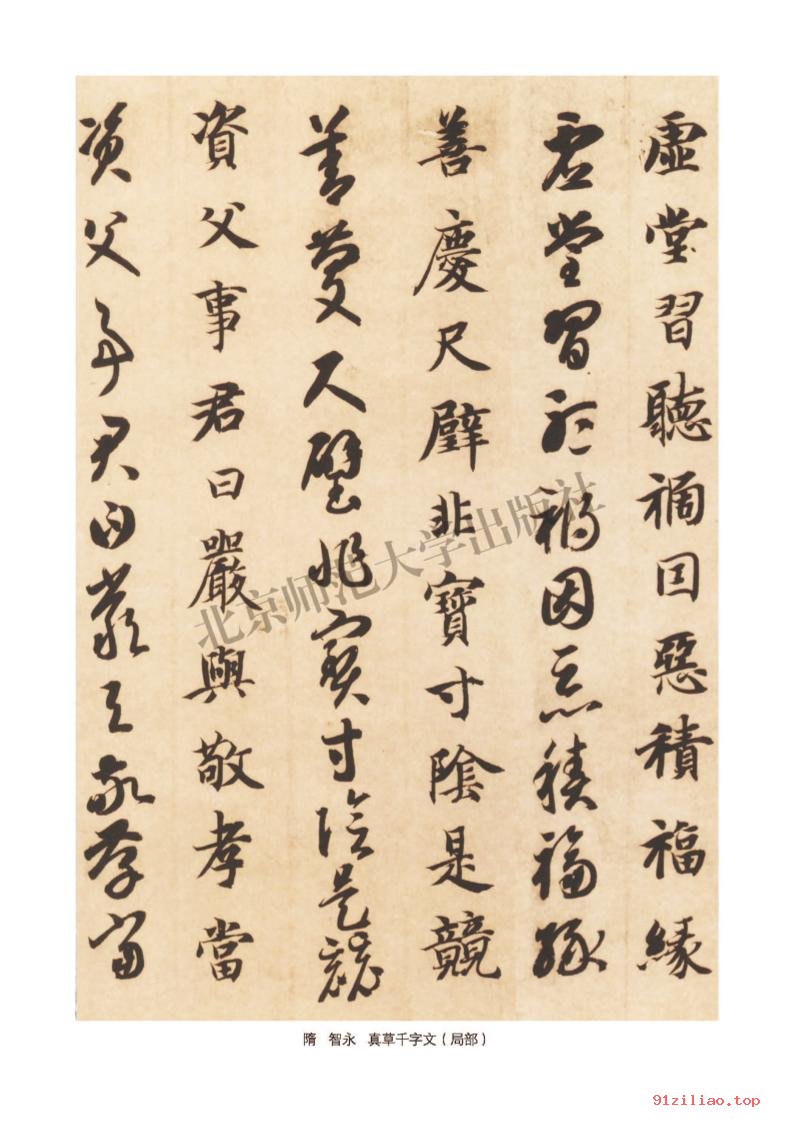 虛堂習聽禍因惡積福緣
虛堂習聽禍因惡積福緣
善慶尺璧非寶寸陰是競
善慶尺璧非寶寸陰是競
資父事君曰嚴與敬孝當
資父事君曰嚴與敬孝當
北京师范大学出版社
隋 智永 真草千字文（局部）
91ziliao.top